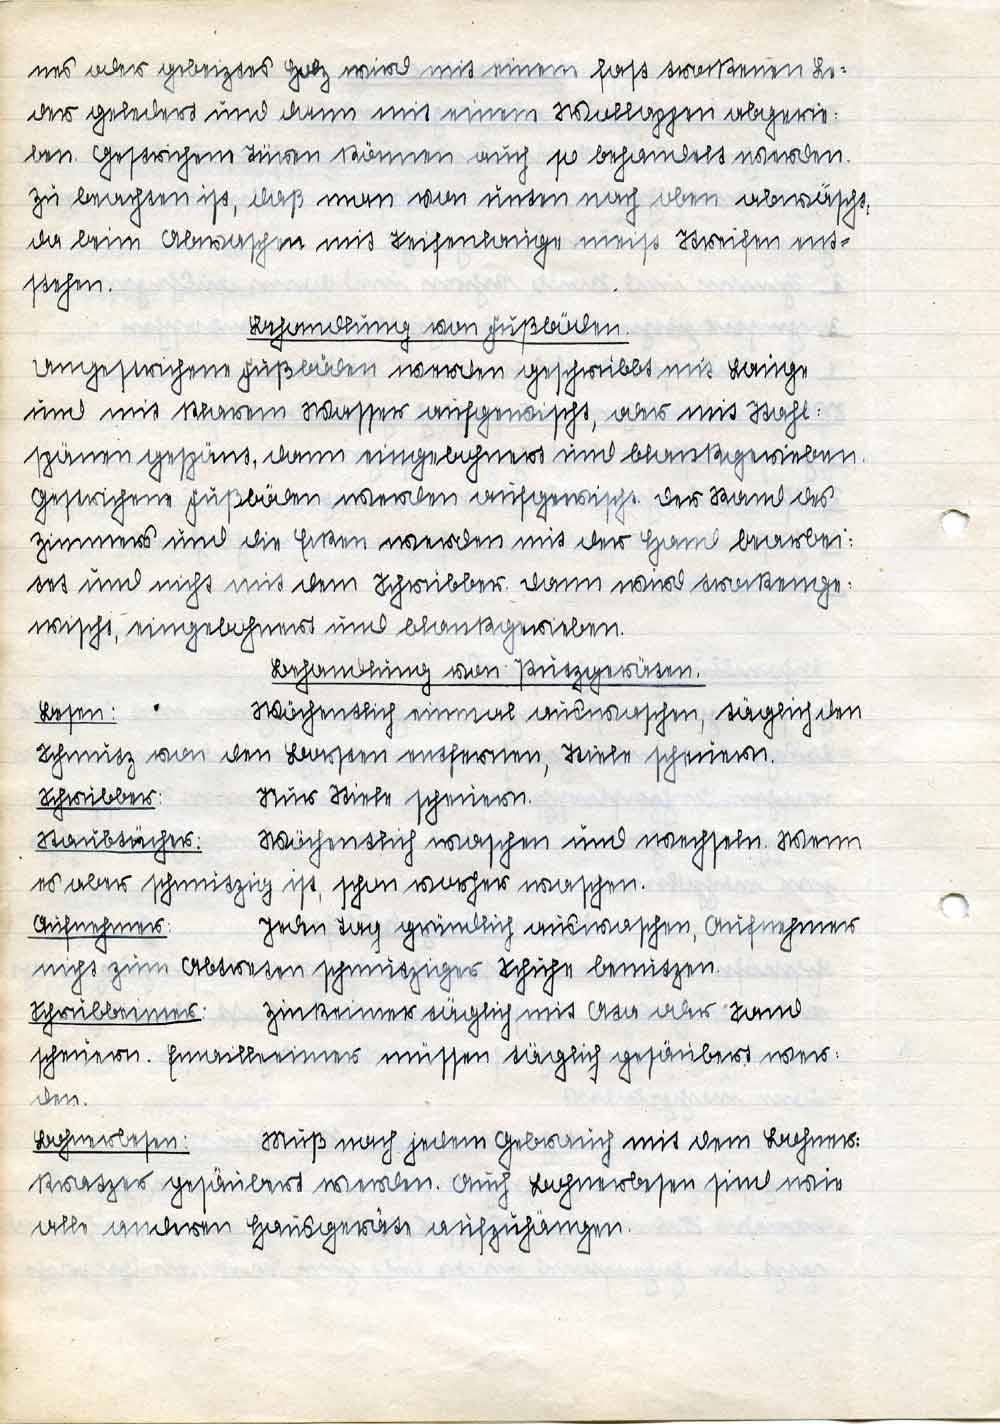 nes oder gebeiztes Holz wird mit einem fast trockenen Le-
der geledert und dann mit einem Wollappen abgerie-
ben. Gestrichene Türen können auch so behandelt werden.
Zu beachten ist, daß man von unten nach oben abwäscht,
da beim Abwaschen mit Seifenlauge meist Streifen ent-
stehen.
Behandlung von Fußböden.
Ungestrichene Fußböden werden geschrubbt mit Lauge
und mit klarem Wasser aufgewischt, oder mit Stahl-
spänen gespänt, dann eingebohnert und blankgerieben.
Gestrichene Fußböden werden aufgewischt. Der Rand des
Zimmers und die Ecken werden mit der Hand bearbei-
tet und nicht mit dem Schrubber. Dann wird trockenge-
wischt, eingebohnert und blankgerieben.
Behandlung von Putzgeräten.
Besen: Wöchentlich einmal auswaschen, täglich den
Schmutz von den Borsten entfernen, Stiele scheuern.
Schrubber: Nur Stiele scheuern.
Staubtücher: Wöchentlich waschen und wechseln. Wenn
es aber schmutzig ist, schon vorher waschen.
Aufnehmer: Jeden Tag gründlich auswaschen, Aufnehmer
nicht zum Abtreten schmutziger Schuhe benutzen.
Schrubbeimer: Zinkeimer täglich mit Ata oder Sand
scheuern. Emailleeimer müssen täglich gesäubert wer-
den.
Bohnerbesen: Muß nach jedem Gebrauch mit dem Bohner-
kratzer gesäubert werden. Auch Bohnerbesen sind wie
alle anderen Hausgeräte aufzuhängen.